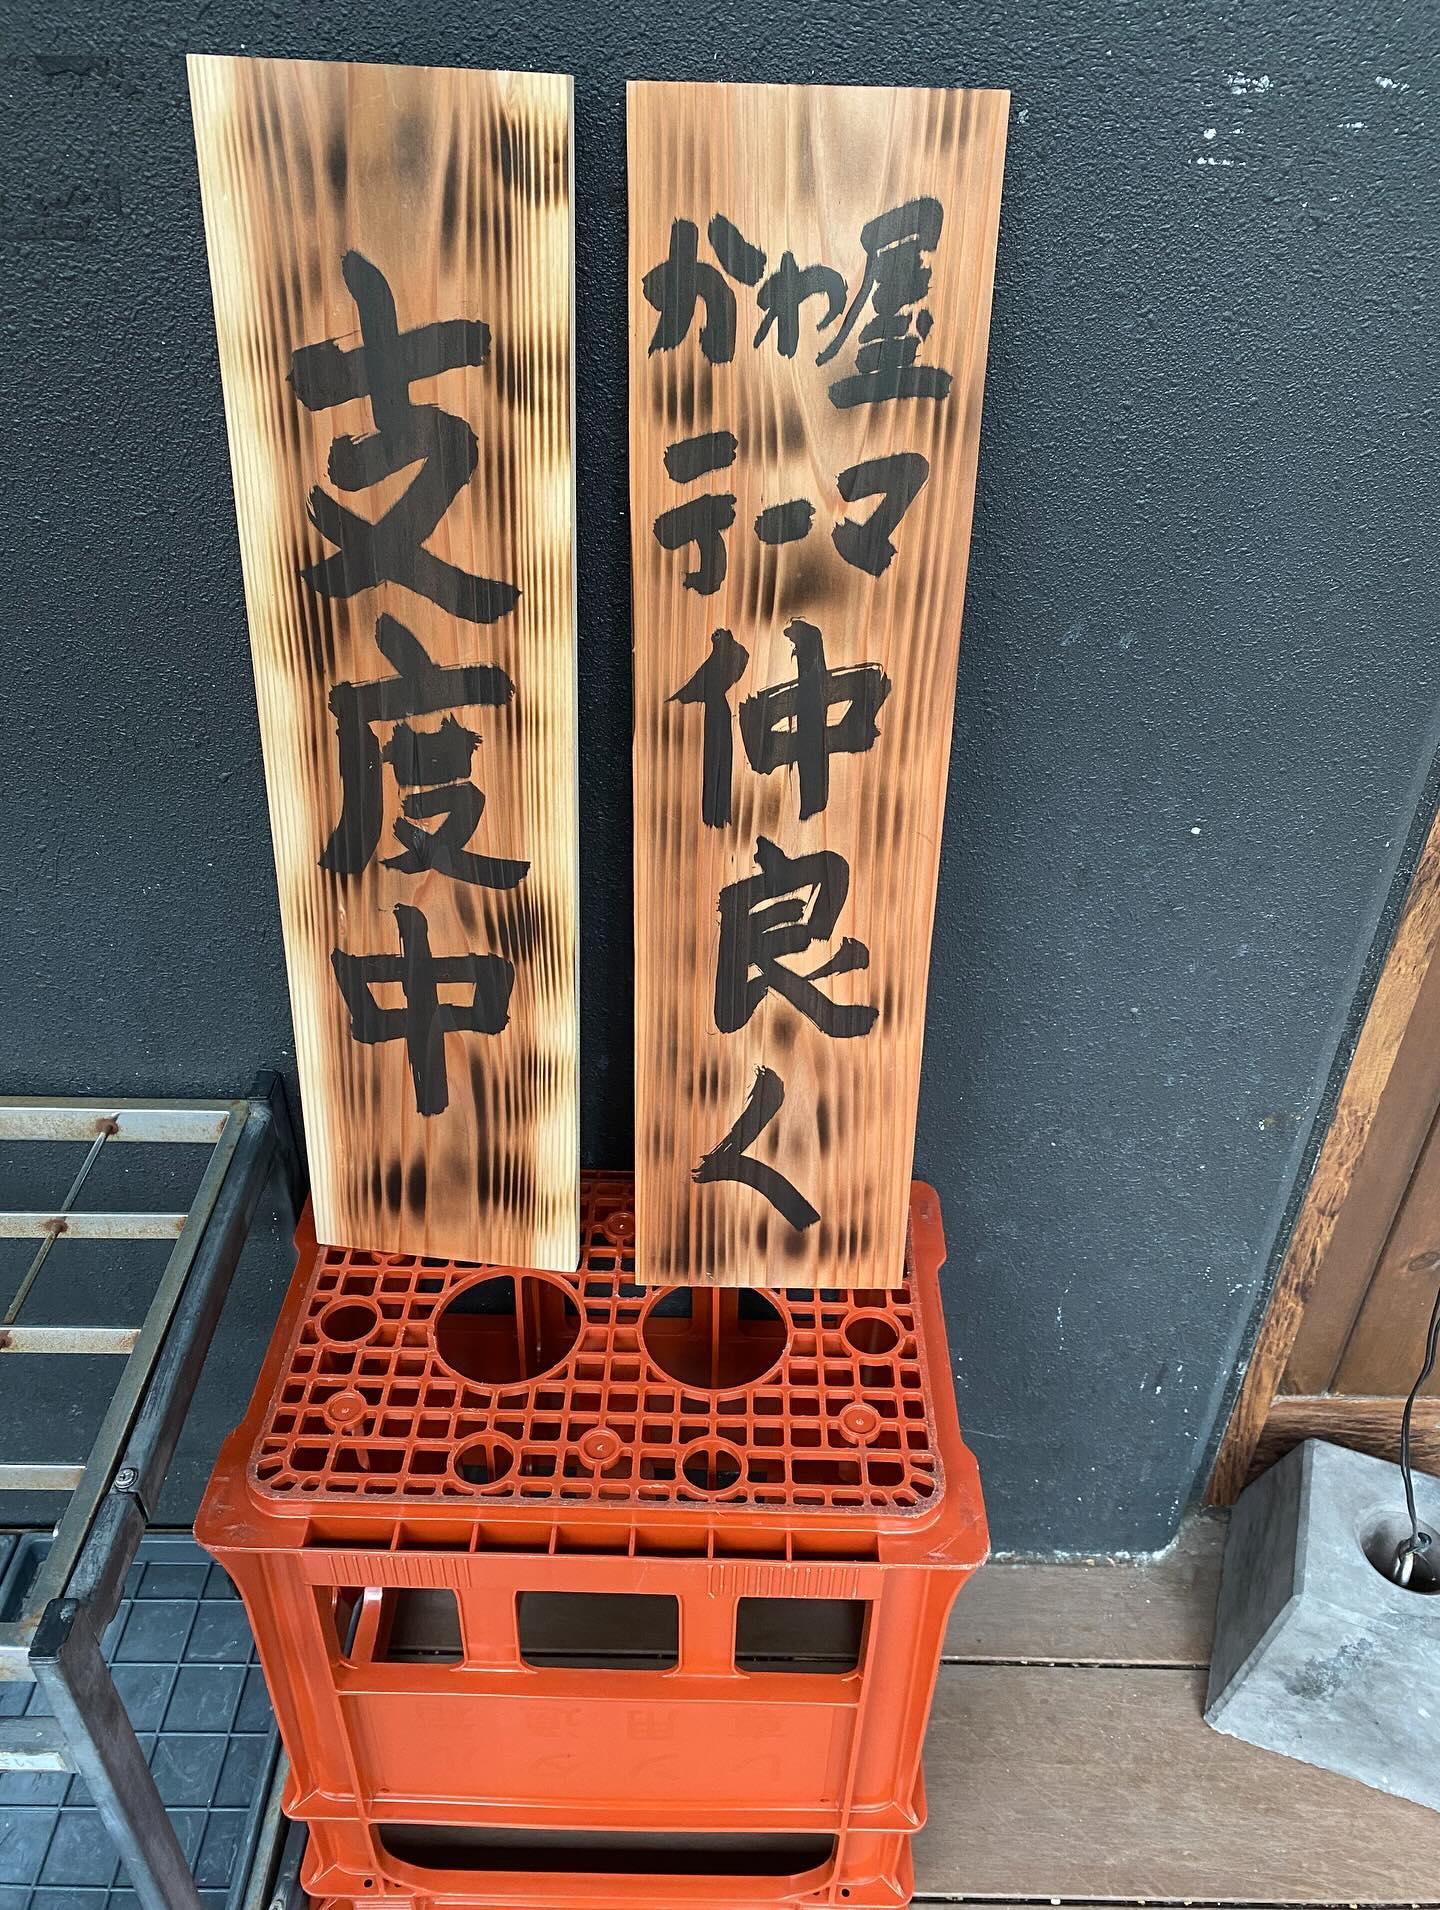 かわ屋
テーマ
仲良く
支度中